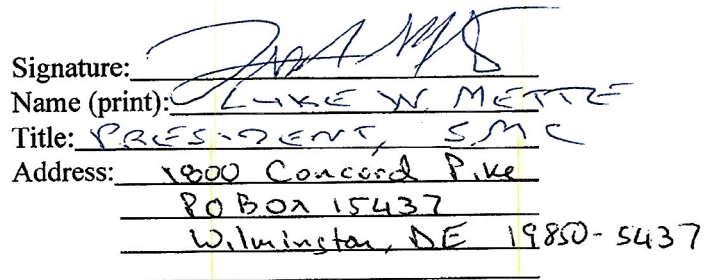 Signature:
Name (print): LUKE W. METTE
Title: PRESIDENT, SMC
Address: 1800 Concord Pike
PO BOX 15437
Wilmington, DE 19850-5437